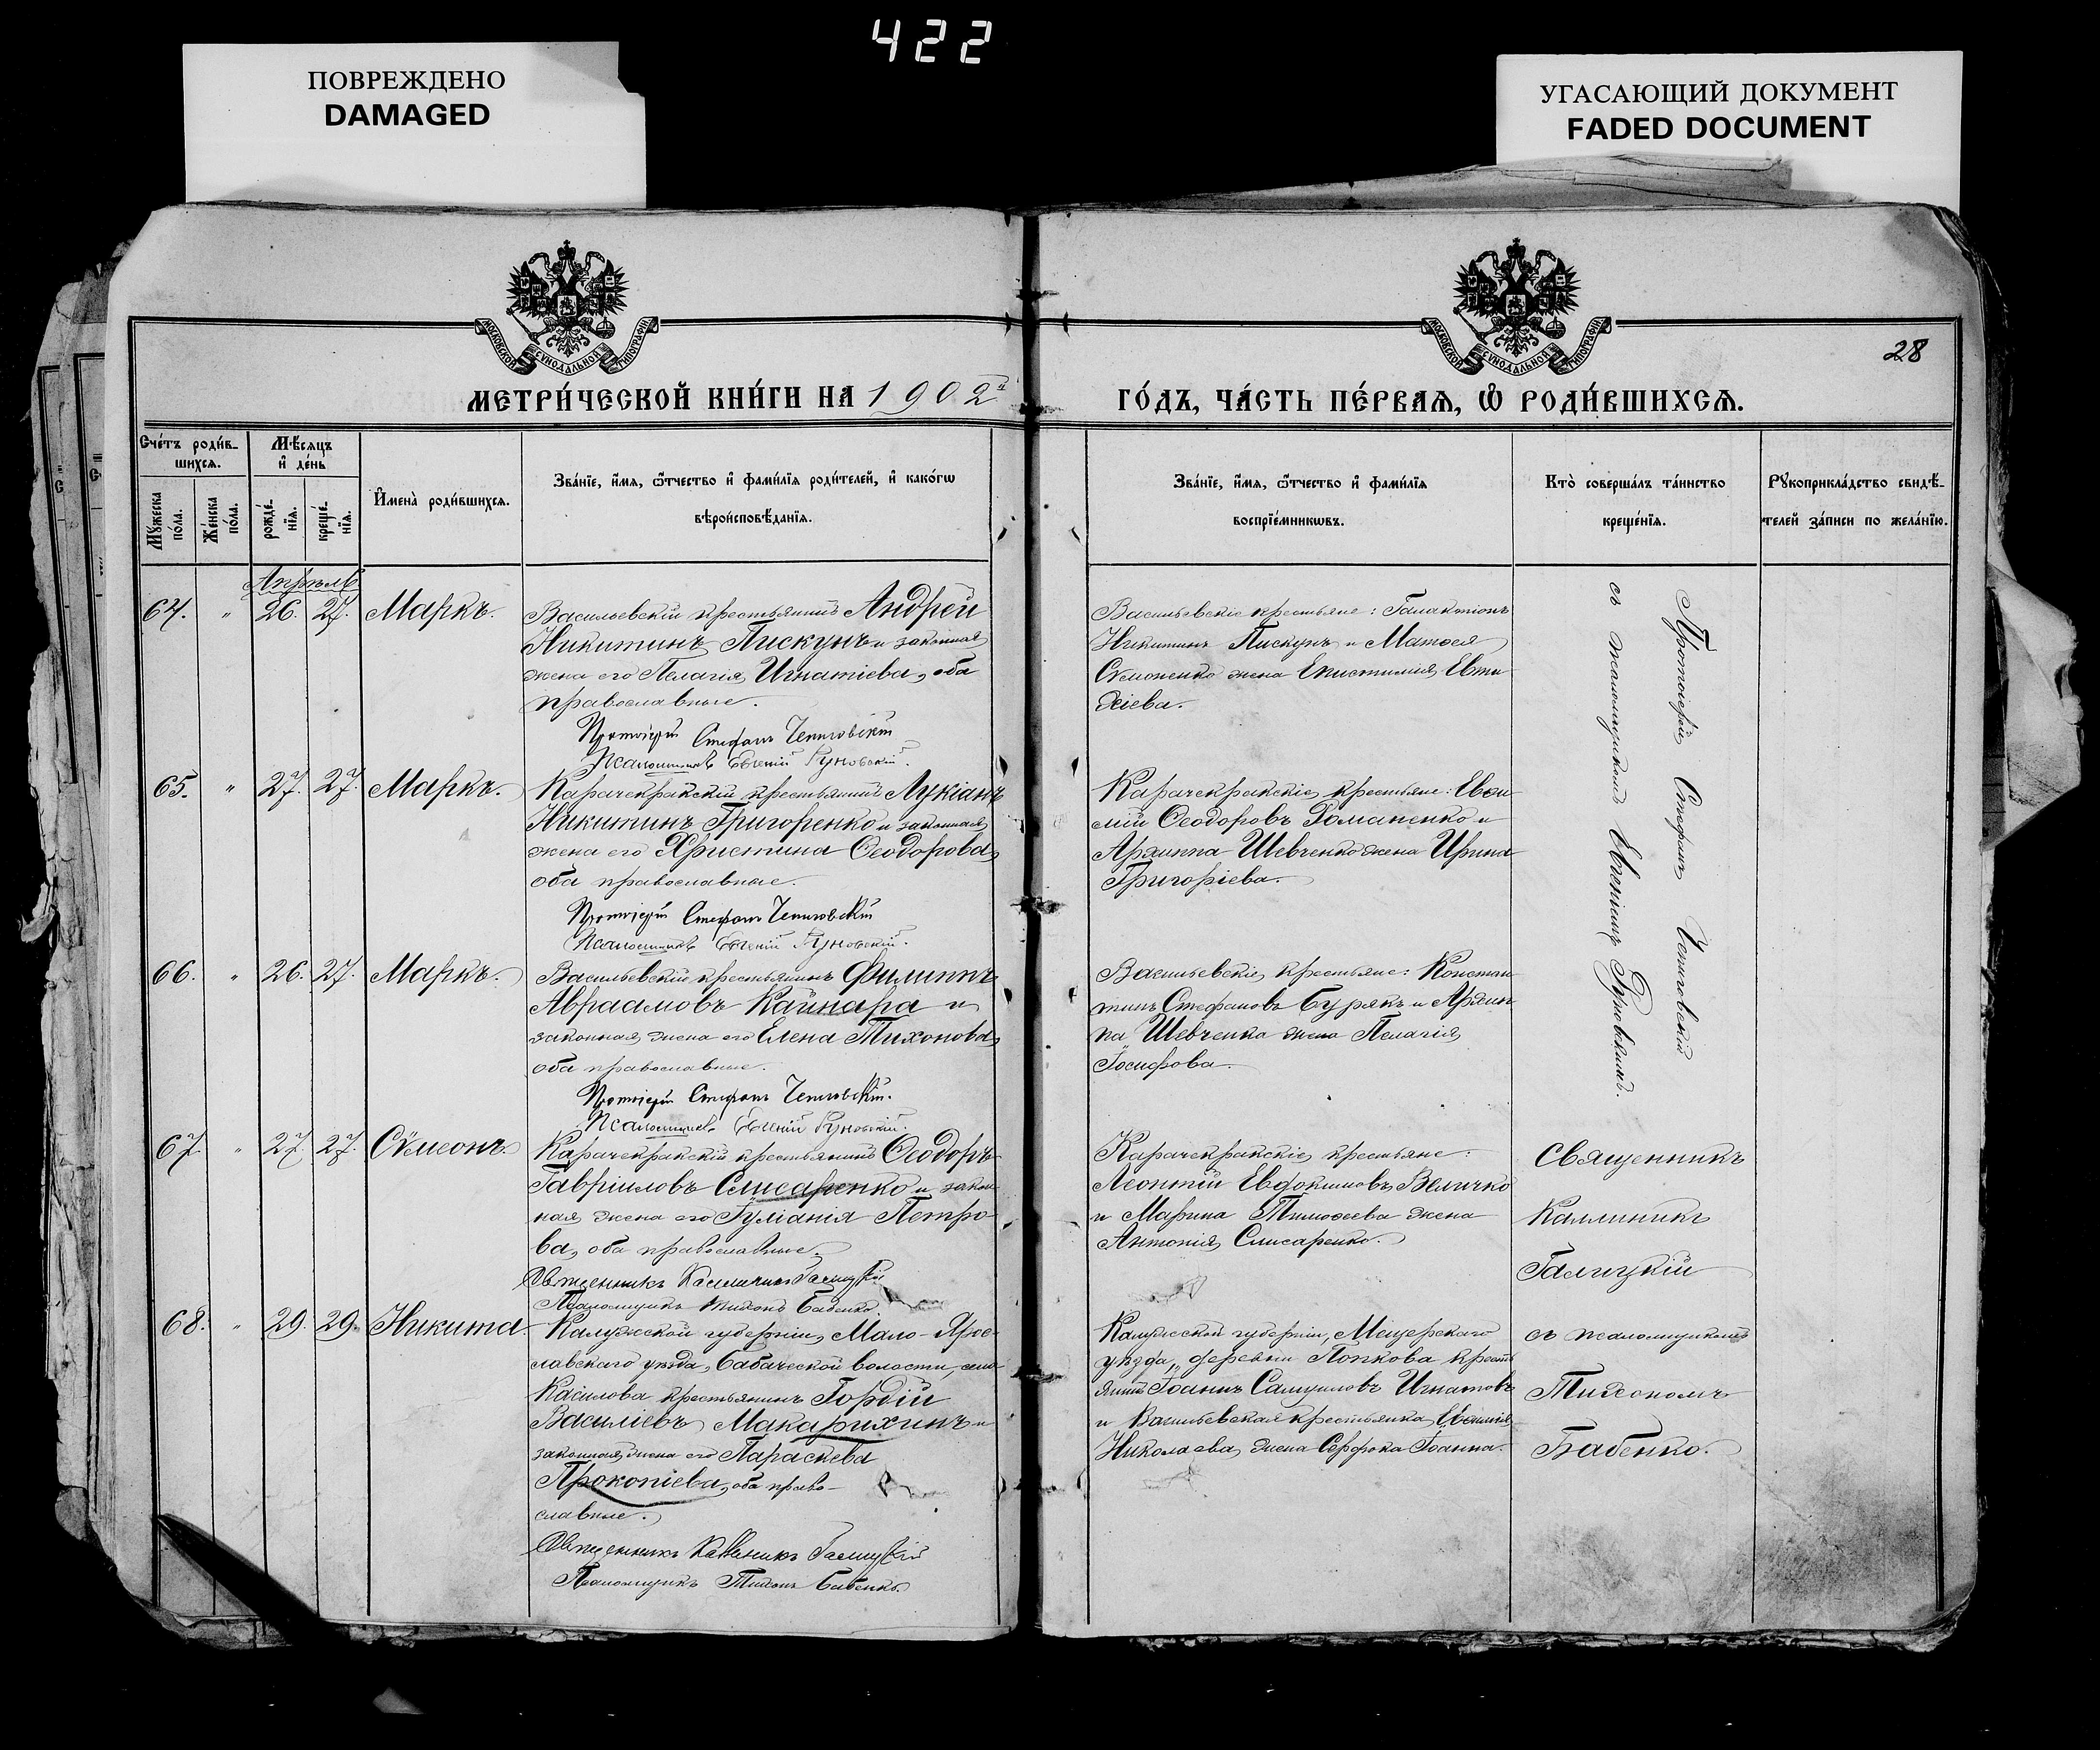 422
ПОВРЕЖДЕНО
DAMAGED
УГАСАЮЩИЙ ДОКУМЕНТ
FADED DOCUMENT
МОСКОВСКОЙ СѴНОДАЛЬНОЙ ТИПОГРАФІИ
МОСКОВСКОЙ СѴНОДАЛЬНОЙ ТИПОГРАФІИ
28
МЕТРИ́ЧЕСКОЙ КНИ́ГИ НА 1902й
ГО́ДЪ, ЧА́СТЬ ПЕ́РВАѦ, Ѡ҆ РОДИ́ВШИХСѦ.
Сче́тъ роди́в-
шихсѧ.
Мꙋ́жеска по́ла.
Же́нска по́ла.
Мѣ́сяцъ
и҆ де́нь
рожде́-
нїѧ.
креще́-
нїѧ.
И҆мена̀ роди́вшихсѧ.
Зва́нїе, и҆́мѧ, ѻ҆́тчество и҆ фами́лїѧ роди́телей, и҆ како́гѡ
вѣроисповѣ́данїѧ.
Зва́нїе, и҆́мѧ, ѻ҆́тчество и҆ фами́лїѧ
воспрїе́мникѡвъ.
Кто̀ соверша́лъ та́инство
креще́нїѧ.
Рꙋкоприкла́дство свидѣ́-
телей за́писи по жела́нїю.
Апрѣль
64. " 26. 27. Маркъ.
Васильевскій крестьянинъ Андрей
Никитинъ Пискунъ и законная
жена его Пелагія Игнатіева, оба
православные.
Протоіерей Стефанъ
Псаломщикъ Евгеній Руновскій.
Васильевскіе крестьяне: Галактіонъ
Никитинъ Пискунъ и Матѳея
жена Епистимія Евти-
хіева.
Протоіерей Стефанъ
съ псаломщикомъ Евгеніемъ Руновскимъ.
65. " 27. 27. Маркъ.
Карачекракскій крестьянинъ Лукіанъ
Никитинъ Григоренко и законная
жена его Христина Ѳеодорова,
оба православные.
Протоіерей Стефанъ
Псаломщикъ Евгеній Руновскій.
Карачекракскіе крестьяне: Евѳи-
мій Ѳеодоровъ Романенко и
Архиппа Шевченко жена Ирина
Григоріева.
66. " 26. 27. Маркъ.
Васильевскій крестьянинъ Филиппъ
Авраамовъ Кайнара и
законная жена его Елена Тихонова,
оба православные.
Протоіерей Стефанъ
Псаломщикъ Евгеній Руновскій.
Васильевскіе крестьяне: Констан-
тинъ Стефановъ Бурякъ и Архип-
па Шевченка жена Пелагія
Іосифова.
67. " 27. 27. Сѵмеонъ.
Карачекракскій крестьянинъ Ѳеодоръ
Гавріиловъ Слисаренко и закон-
ная жена его Іуліанія Петро-
ва, оба православные.
Священникъ Каллиникъ Галицкій
Псаломщикъ Тихонъ Бабенко.
Карачекракскіе крестьяне:
Леонтій Евдокимовъ Величко
и Марина Тимоѳеева жена
Антонія Слисаренко.
Священникъ
Каллиникъ
Галицкій
съ псаломщикомъ
Тихономъ
Бабенко.
68. " 29. 29. Никита.
Калужской губерніи, Мало-Яро-
славскаго уѣзда, волости, села
крестьянинъ Гордій
Василіевъ Макарихинъ и
законная жена его Параскева
Прокопіева, оба право-
славные.
Священникъ Каллиникъ Галицкій
Псаломщикъ Тихонъ Бабенко.
Калужской губерніи, Мещерскаго
уѣзда, деревни Попкова крестья-
нинъ Іоаннъ Самуиловъ Игнатовъ
и Васильевская крестьянка Евѳимія
Николаева, жена Іоанна.